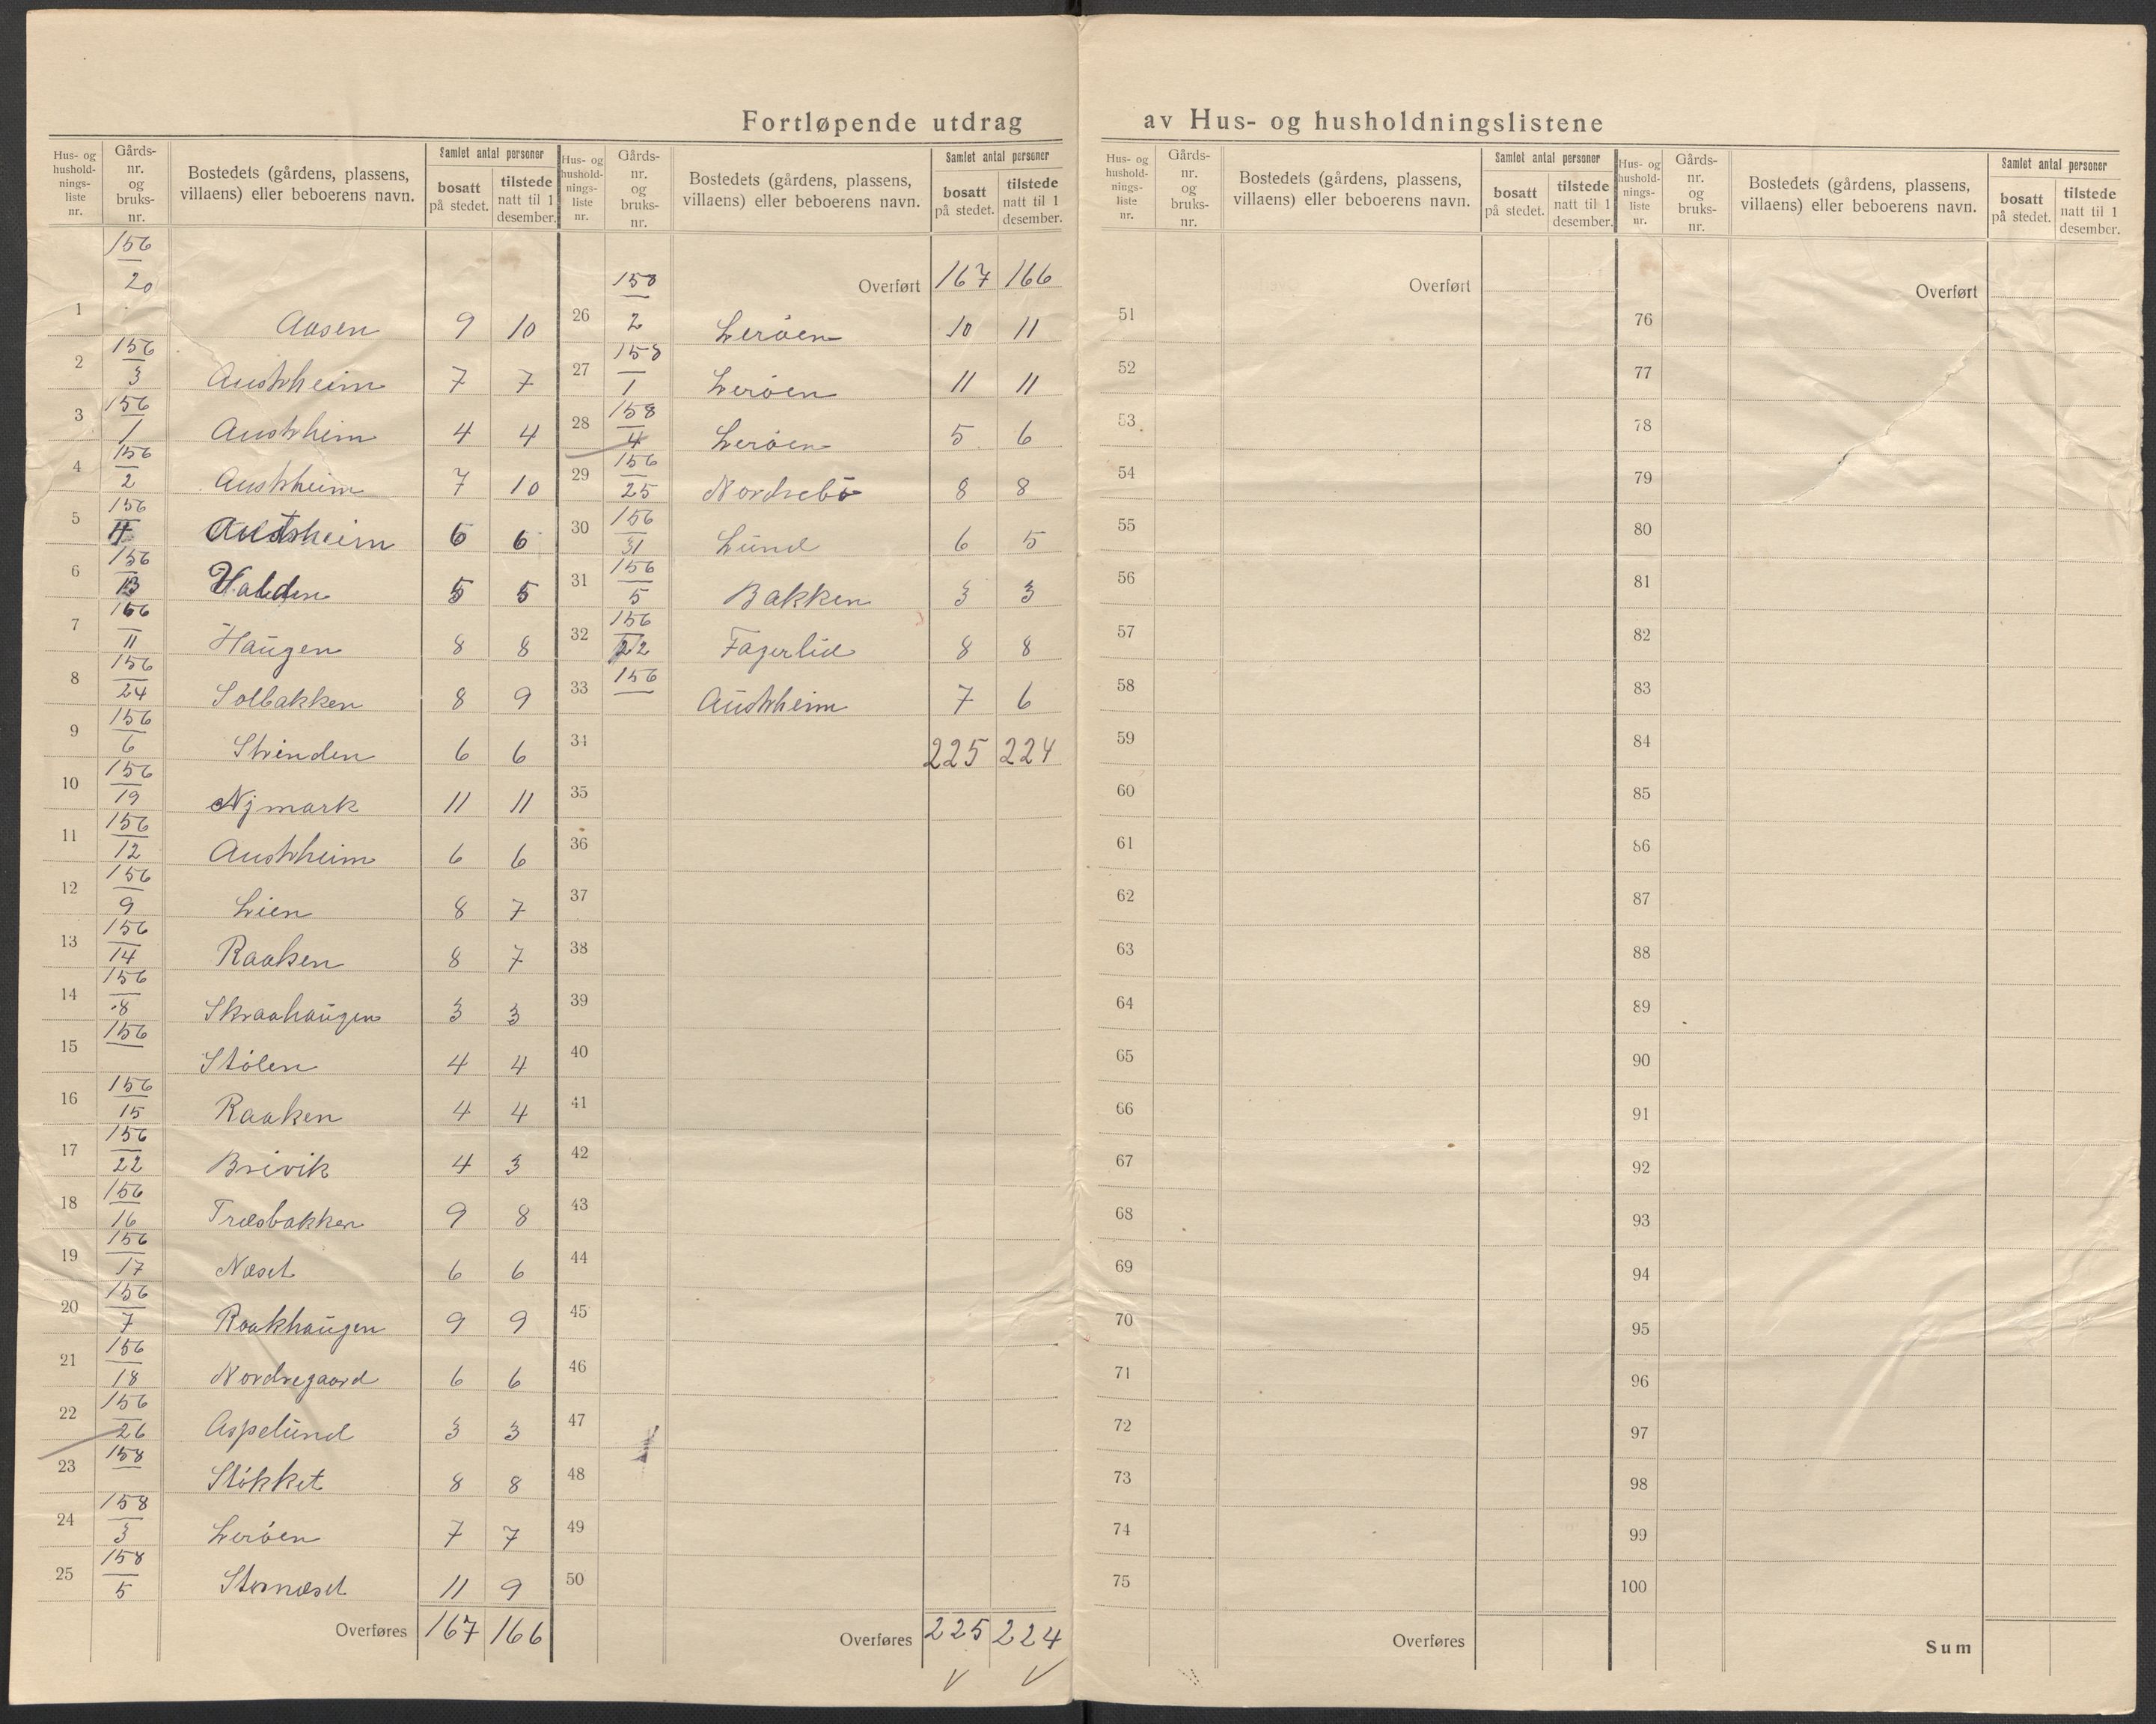 Fortløpende utdrag av Hus- og husholdningslistene
Hus- og hushold-nings-liste nr. | Gårds-nr. og bruks-nr. | Bostedets (gårdens, plassens, villaens) eller beboerens navn. | Samlet antal personer | bosatt på stedet. | tilstede natt til 1 desember.
1 156/20 Aasen 9 10
2 156/3 Austrheim 7 7
3 156/1 Austrheim 4 4
4 156/2 Austrheim 7 10
5 156/4 Austrheim 6 6
6 156/13 Halden 5 5
7 156/11 Haugen 8 8
8 156/24 Solbakken 8 9
9 156/6 Strinden 6 6
10 156/19 Nymark 11 11
11 156/12 Austrheim 6 6
12 156/9 Lien 8 7
13 156/14 Raaken 8 7
14 156/8 Skraahaugen 3 3
15 156 Stölen 4 4
16 156/15 Raaken 4 4
17 156/22 Brivik 4 3
18 156/16 Træsbakken 9 8
19 156/17 Næset 6 6
20 156/7 Raakhaugen 9 9
21 156/18 Nordregaard 6 6
22 156/26 Aspelund 3 3
23 158 Stökket 8 8
24 158/3 Leröen 7 7
25 158/5 Stornæset 11 9
Overføres 167 166
Hus- og hushold-nings-liste nr. | Gårds-nr. og bruks-nr. | Bostedets (gårdens, plassens, villaens) eller beboerens navn. | Samlet antal personer | bosatt på stedet. | tilstede natt til 1 desember.
Overført 167 166
26 158/2 Leröen 10 11
27 158/1 Leröen 11 11
28 158/4 Leröen 5 6
29 156/25 Nordrebö 8 8
30 156/31 Lund 6 5
31 156/5 Bakken 3 3
32 156/22 Fagerlid 8 8
33 156 Austrheim 7 6
34 225 224
35
36
37
38
39
40
41
42
43
44
45
46
47
48
49
50
Overføres 225 224
Hus- og hushold-nings-liste nr. | Gårds-nr. og bruks-nr. | Bostedets (gårdens, plassens, villaens) eller beboerens navn. | Samlet antal personer | bosatt på stedet. | tilstede natt til 1 desember.
Overført
51
52
53
54
55
56
57
58
59
60
61
62
63
64
65
66
67
68
69
70
71
72
73
74
75
Overføres
Hus- og hushold-nings-liste nr. | Gårds-nr. og bruks-nr. | Bostedets (gårdens, plassens, villaens) eller beboerens navn. | Samlet antal personer | bosatt på stedet. | tilstede natt til 1 desember.
Overført
76
77
78
79
80
81
82
83
84
85
86
87
88
89
90
91
92
93
94
95
96
97
98
99
100
Sum